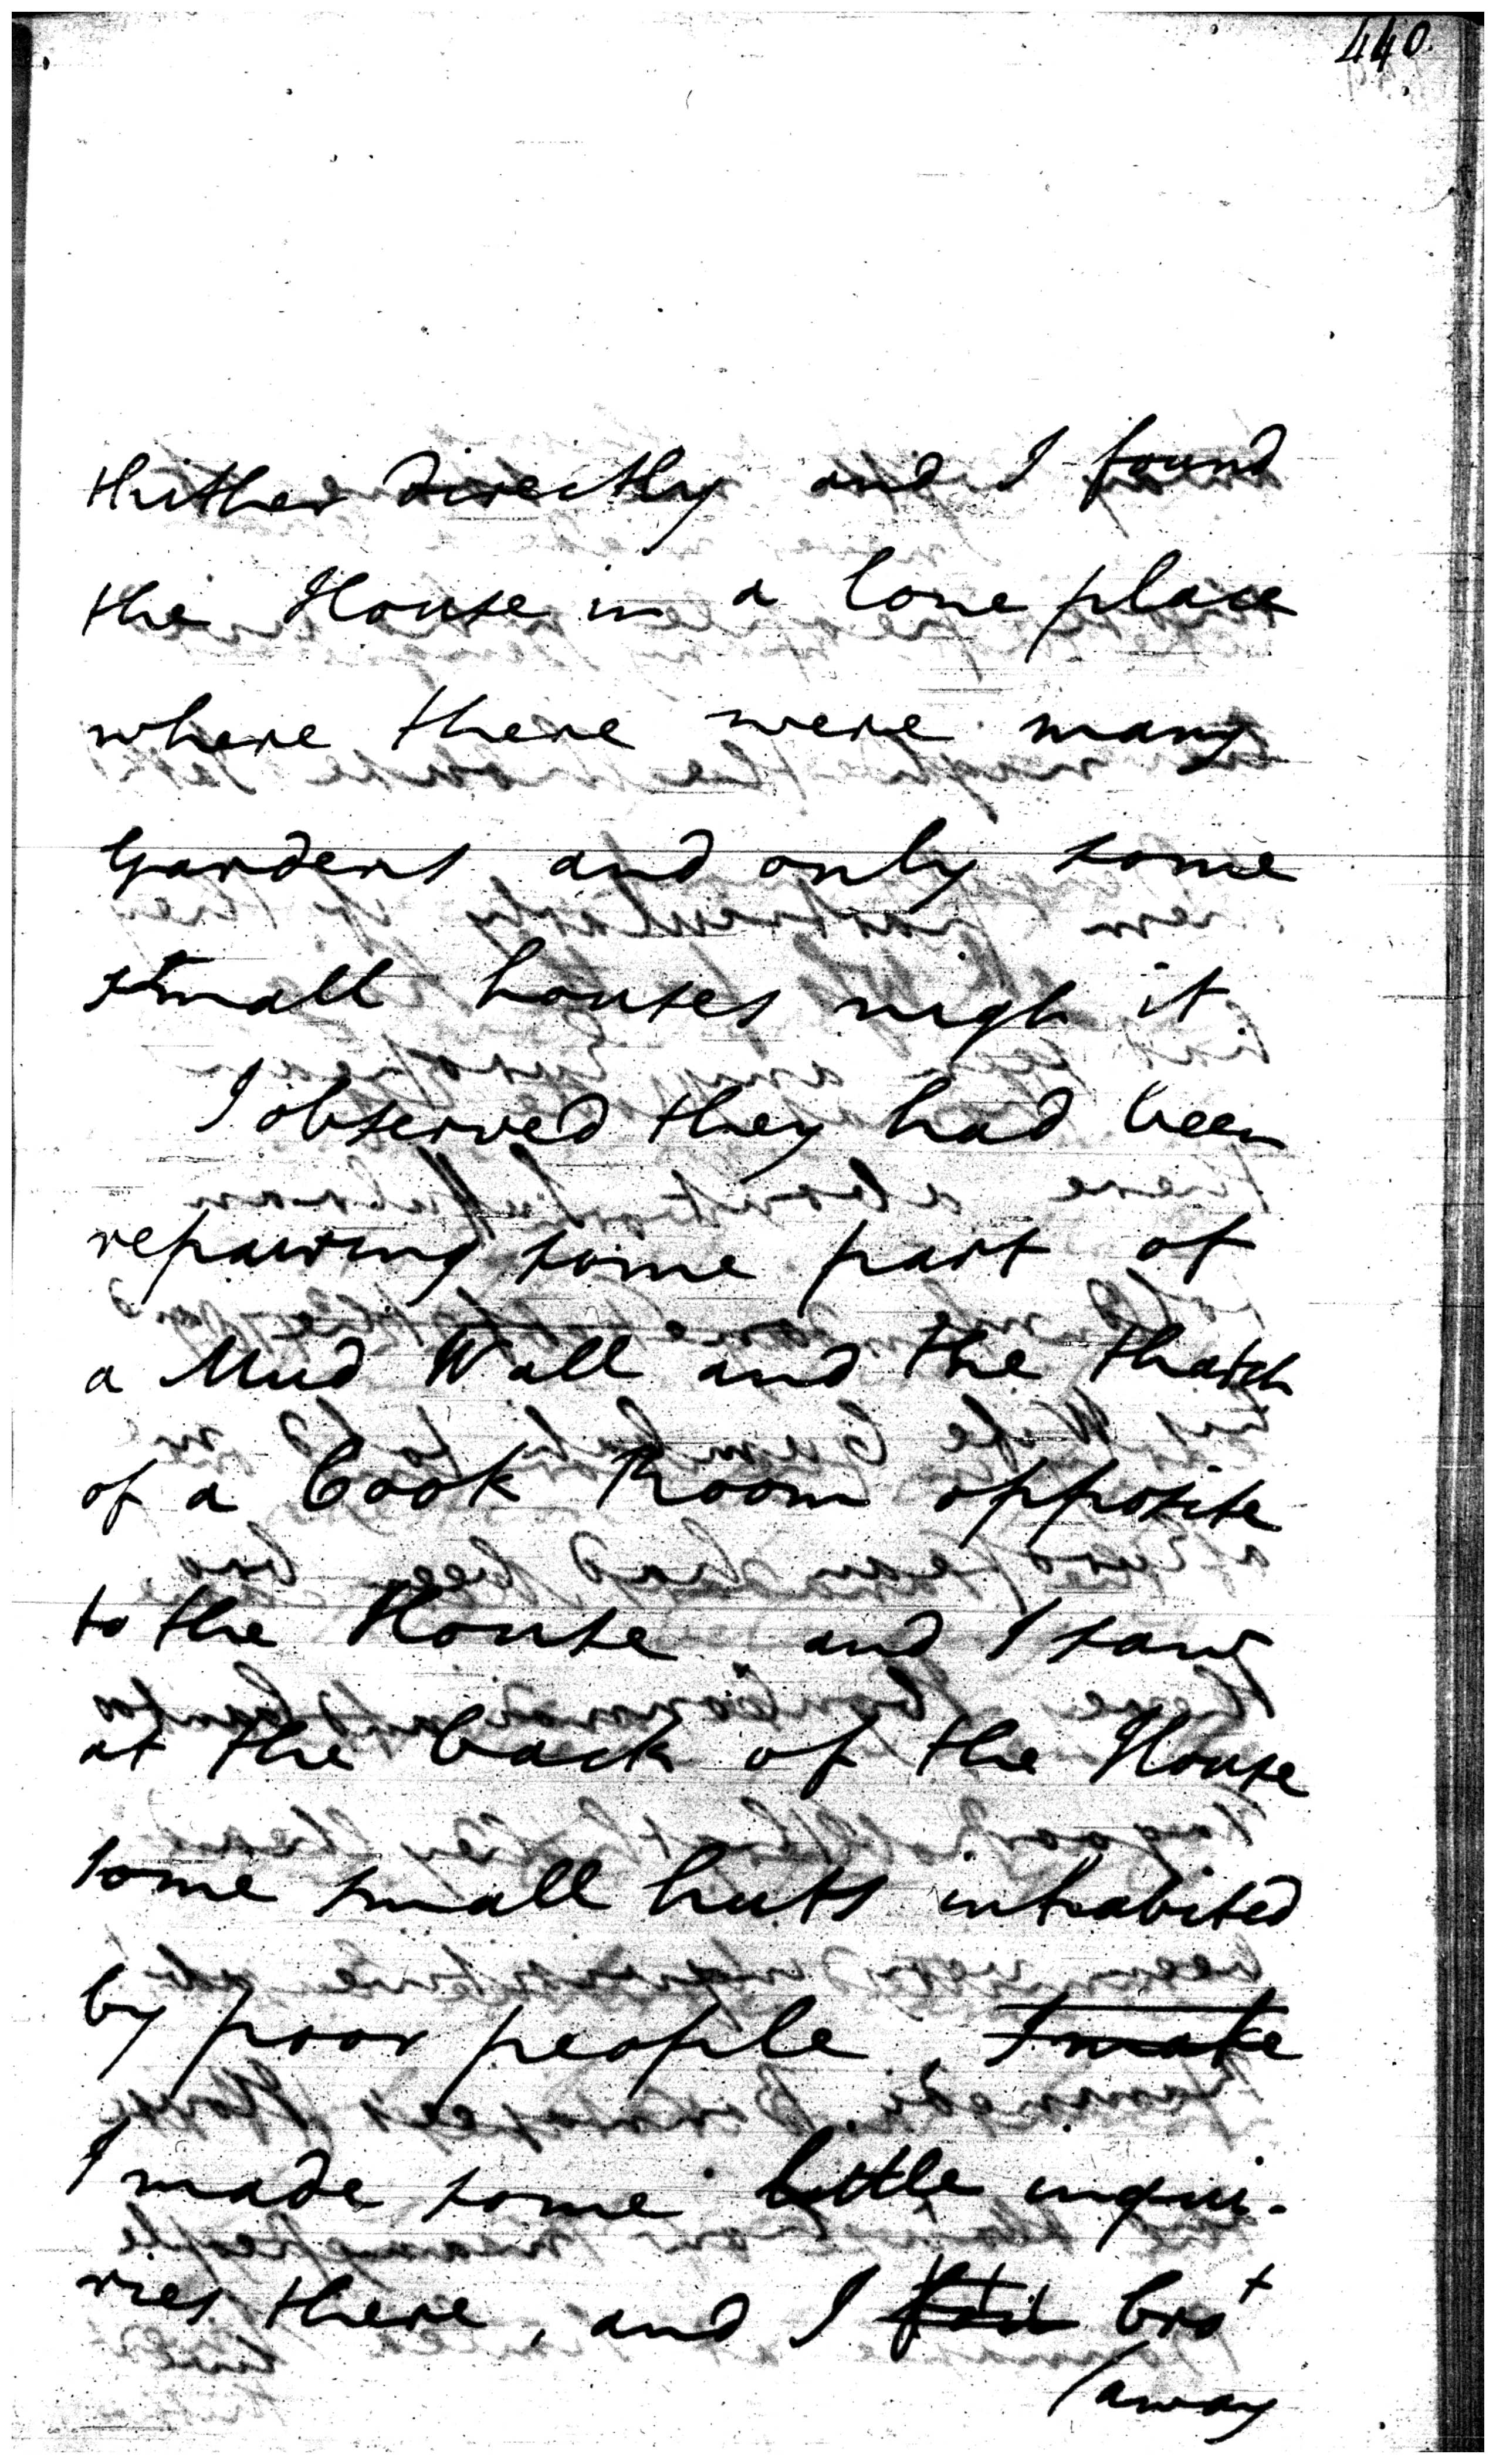 440.
thither directly and I found
the House in a lone place
where there were many
Gardens and only some
small houses nigh it.
I observed they had been
repairing some part of
a Mud Wall and the thatch
of a Cook Room opposite
to the House and I saw
at the back of the House
some small huts inhabited
by poor people, I make
I made some little inqui-
ries there, and I bro^t
/away